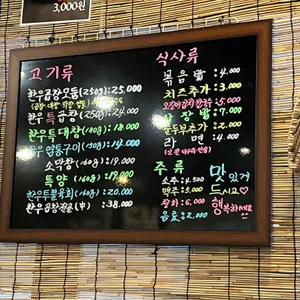 3,000원
고기류
한우곱창모둠(250g):25.000
한우특곱창(250g):24.000
한우특대창(180g):18.000
한우염통구이(140g):14.000
소막창(160g):19.000
특양(160g):19.000
한우투뿔육회(160g):20.000
한우곱창전골(中):38.000
식사류
볶음밥:4.000
치즈추가:3.000
간장밥:7.000
순두부추가:2.000
라면:4.000
주류
소주:4.500
맥주:5.000
청하:6.000
음료:2.000
맛있게
드시요♡
행복하세요